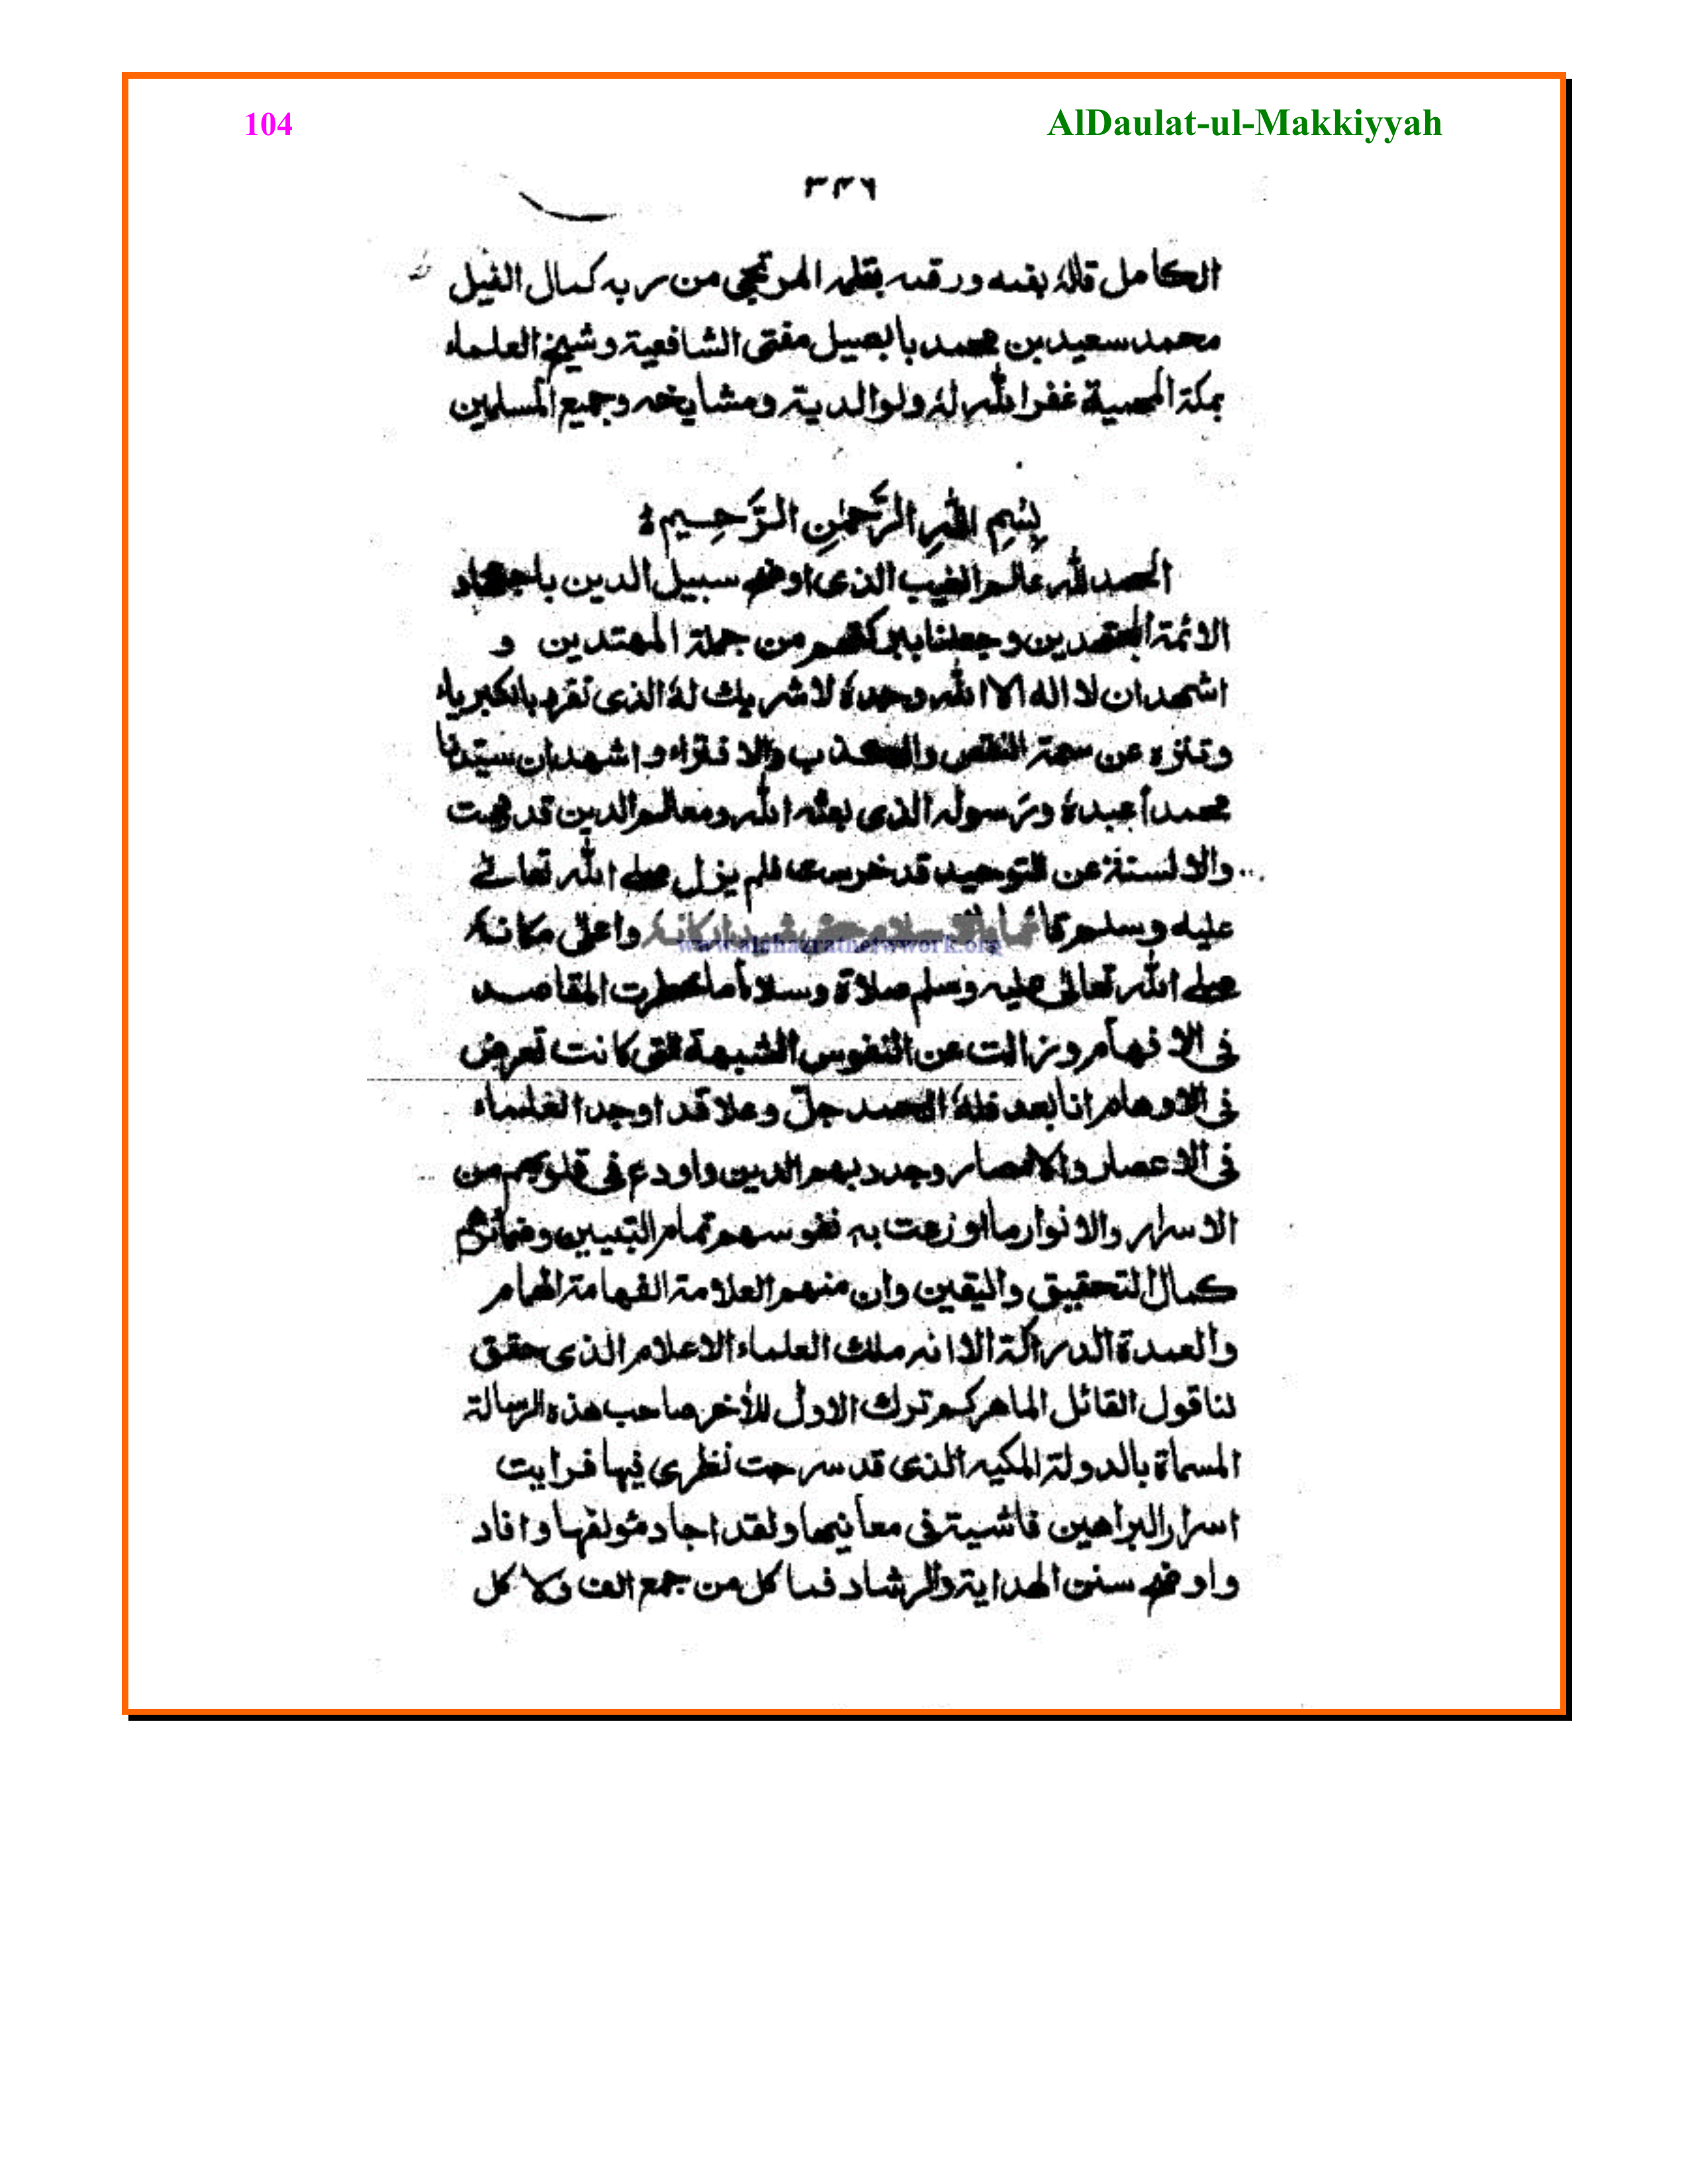 104 AlDaulat-ul-Makkiyyah
٣٤٦
الكامل قالهٗ بفمه ورقمه بقلمه المرتجى من ربه كمال النيل
محمد سعيد بن محمد بابصيل مفتى الشافعية وشيخ العلماء
بمكة المحمية غفر الله لهٗ ولوالديه ومشايخه وجميع المسلمين
بِسْمِ اللهِ الرَّحْمٰنِ الرَّحِيمِ
الحمد لله عالم الغيب الذى اوضح سبيل الدين باجتهاد
الائمة المجتهدين وجعلنا ببركتهم من جملة المهتدين و
اشهد ان لا اله الا الله وحدهٗ لا شريك لهٗ الذى تفرد بالكبرياء
وتنزه عن سمة النقص والكذب والافتراء واشهد ان سيّدنا
محمداً عبدهٗ ورسوله الذى بعثه الله ومعالم الدين قد
والالسنة عن التوحيد قد خرست فلم يزل صلى الله تعالى
عليه وسلم قائما واعلى مكانهٗ
صلى الله تعالى عليه وسلم صلاة وسلاماً ما خطرت المقاصد
فى الافهام وزالت عن النفوس الشبهة التى كانت تعرض
فى الاوهام اما بعد فلهٗ الحمد جلّ وعلا قد اوجد العلماء
فى الاعصار والامصار وجدد بهم الدين واودع فى قلوبهم من
الاسرار والانوار ما به نفوسهم تمام التبيين وضمائرهم
كمال التحقيق واليقين وان منهم العلامة الفهامة الهمام
والعمدة الدراكة الا انه ملك العلماء الاعلام الذى حقق
لنا قول القائل الماهر كم ترك الاول للأخر صاحب هذه الرسالة
المسماة بالدولة المكيه الذى قد سرحت نظرى فيها فرايت
اسرار البراهين فاشية فى معانيها ولقد اجاد مؤلفها وافاد
واوضح سنن الهداية والرشاد فما كل من جمع الف ولا كل
www.alahazratnetwork.org